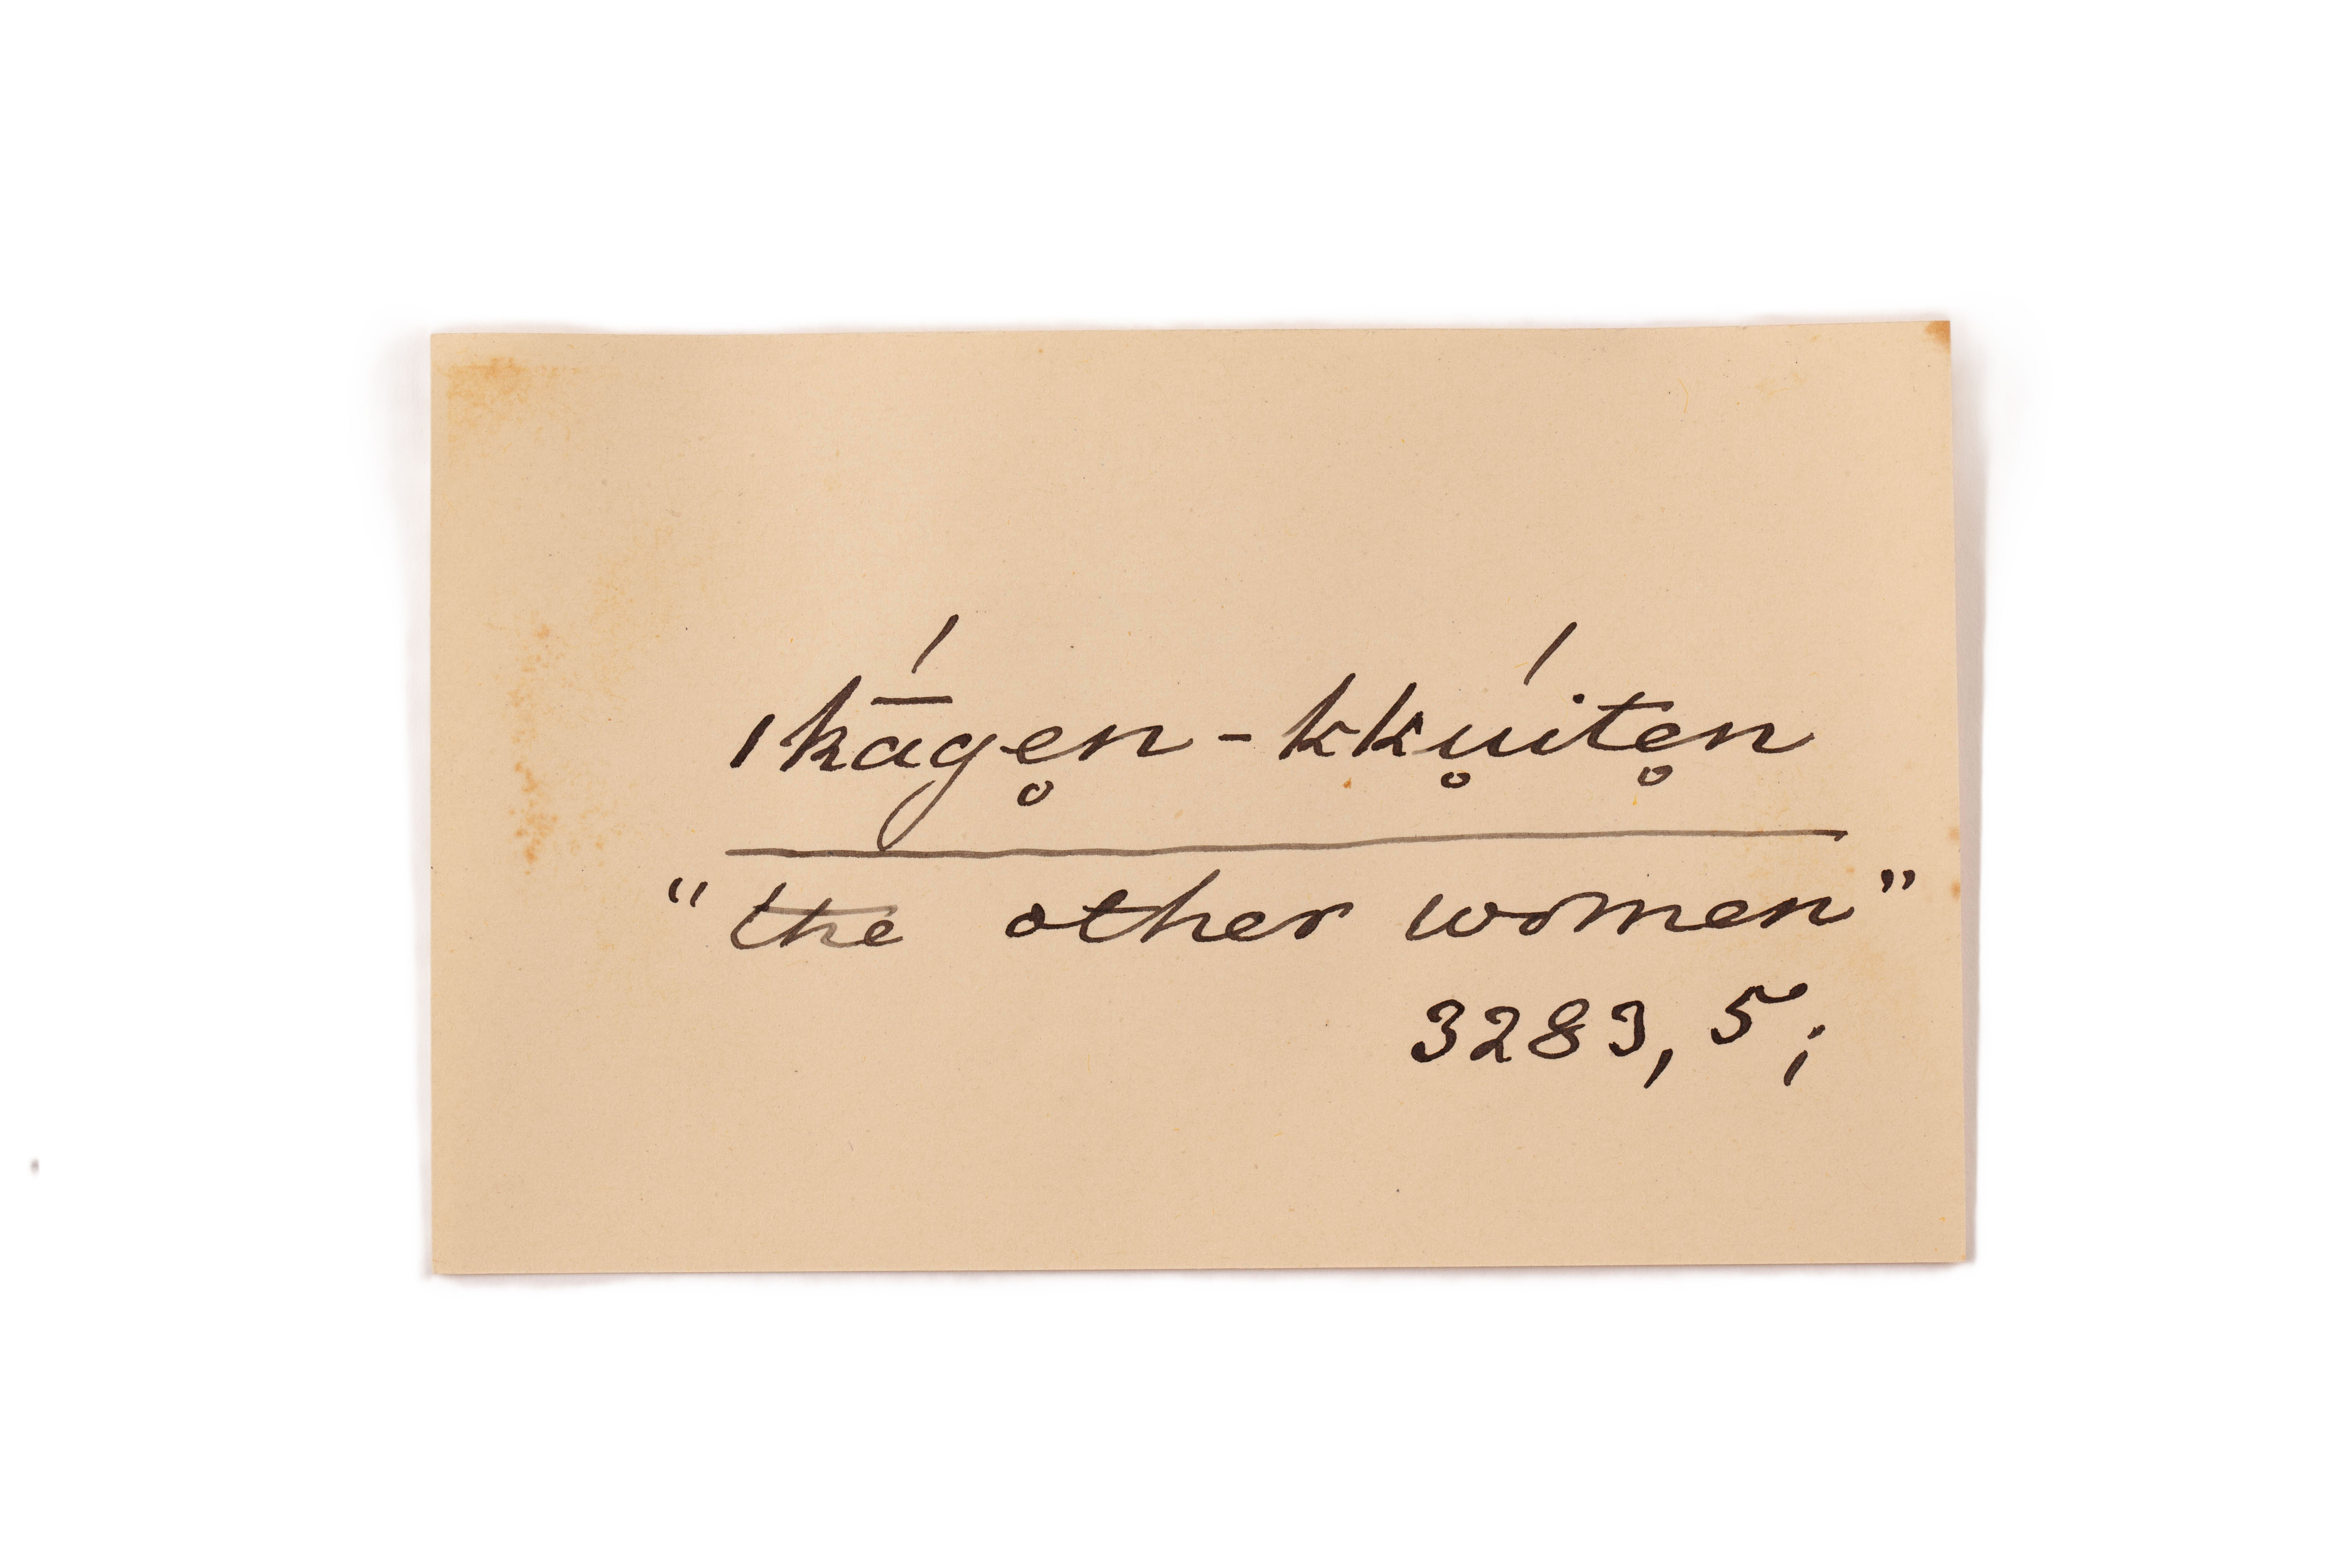 ı́kā́ge̥n-kku̥̍ite̥n
"the other women"
3283, 5;